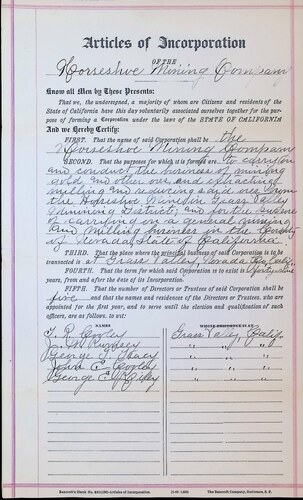 Articles of Incorporation
OF THE
Horseshoe Mining Company
Know all Men by These Presents:
That we, the undersigned, a majority of whom are Citizens and residents of the
State of California have this day voluntarily associated ourselves together for the pur-
pose of forming a Corporation under the laws of the STATE OF CALIFORNIA
And we Hereby Certify:
FIRST. That the name of said Corporation shall be the
Horseshoe Mining Company
SECOND. That the purposes for which it is formed are to carry on
and conduct the business of mining
gold and other ores and extracting
melting and reducing said ores from
the Horseshoe Mine in Grass Valley
Mining District, and for the purpose
of carrying on a general mining
and Milling business in the County
of Nevada, State of California.
THIRD. That the place where the principal business of said Corporation is to be
transacted is at Grass Valley, Nevada Co. Calif.
FOURTH. That the term for which said Corporation is to exist is forty-nine
years, from and after the date of its Incorporation.
FIFTH. That the number of Directors or Trustees of said Corporation shall be
five and that the names and residences of the Directors or Trustees. who are
appointed for the first year, and to serve until the election and qualification of
such officers, are as follows, to wit:
NAMES WHOSE RESIDENCE IS AT
Grass Valley, Calif.
" " "
George J. " " "
John E. " " "
George E. " " "